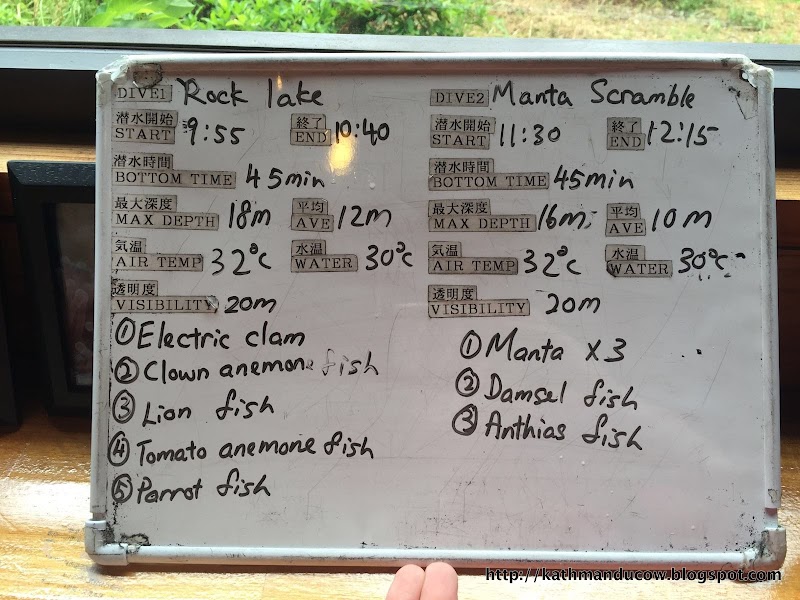 DIVE1 Rock lake
潜水開始 START 9:55 終了 END 10:40
潜水時間 BOTTOM TIME 45min
最大深度 MAX DEPTH 18m 平均 AVE 12m
気温 AIR TEMP 32°C 水温 WATER 30°C
透明度 VISIBILITY 20m
① Electric clam
② Clown anemone fish
③ Lion fish
④ Tomato anemone fish
⑤ Parrot fish
DIVE2 Manta Scramble
潜水開始 START 11:30 終了 END 12:15
潜水時間 BOTTOM TIME 45min
最大深度 MAX DEPTH 16m 平均 AVE 10m
気温 AIR TEMP 32°C 水温 WATER 30°C
透明度 VISIBILITY 20m
① Manta x3
② Damsel fish
③ Anthias fish
http://kathmanducow.blogspot.com